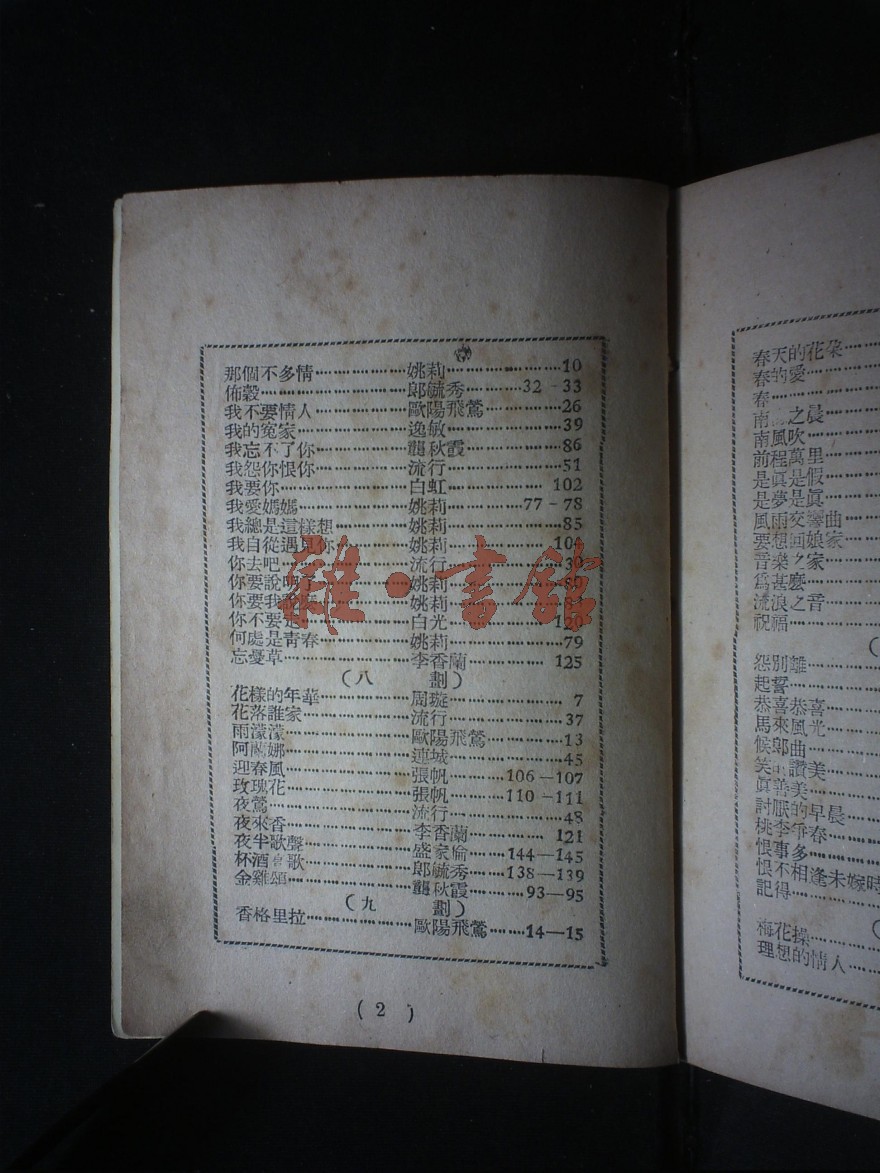 那個不多情……姚莉……10
佈穀……郎毓秀……32-33
我不要情人……歐陽飛鶯……26
我的冤家……逸敏……39
我忘不了你……龔秋霞……86
我怨你恨你……流行……51
我要你……白虹……102
我愛媽媽……姚莉……77-78
我總是這樣想……姚莉……85
我自從遇見你……姚莉……104
你去吧……流行……30
你要說明了……姚莉……80
你要我……姚莉
你不要走……白光……120
何處是青春……姚莉……79
忘憂草……李香蘭……125
(八劃)
花樣的年華……周璇……7
花落誰家……流行……37
雨濛濛……歐陽飛鶯……13
阿蘭娜……連城……45
迎春風……張帆……106—107
玫瑰花……張帆……110—111
夜鶯……流行……48
夜來香……李香蘭……121
夜半歌聲……盛家倫……144—145
杯酒高歌……郎毓秀……138—139
金雞頌……龔秋霞……93—95
(九劃)
香格里拉……歐陽飛鶯……14—15
(2)
雜·書館
春天的花朵……
春的愛……
春……
南 之晨……
南風吹……
前程萬里……
是眞是假……
是夢是眞……
風雨交響曲……
要想回娘家……
音樂之家……
爲甚麽……
流浪之音……
祝福……
(
怨別離……
起誓……
恭喜恭喜……
馬來風光……
候郎曲……
笑的讚美……
眞善美……
討厭的早晨……
桃李爭春……
恨事多……
恨不相逢未嫁時
記得……
(
梅花操……
理想的情人……